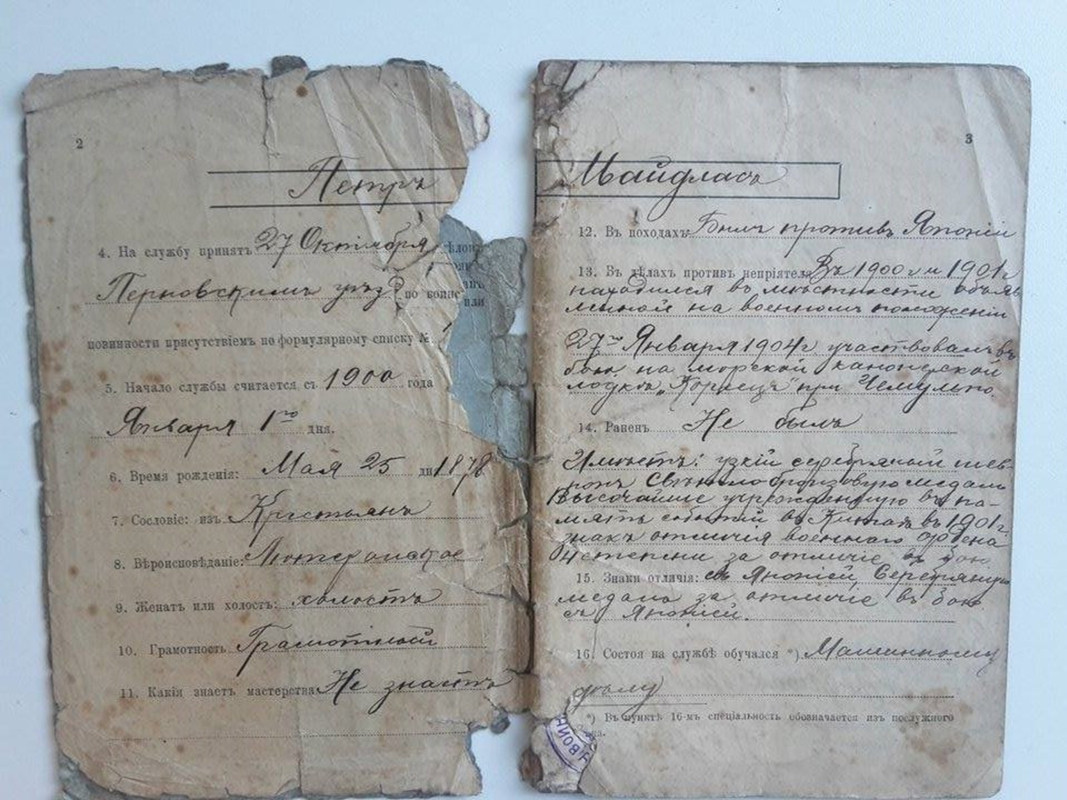 2
Петръ
4. На службу принятъ 27 Октября
Перновскимъ уѣзд по воинс
повинности присутствіемъ по формулярному списку №
5. Начало службы считается съ 1900 года
Января 1го дня.
6. Время рожденія: Мая 25 дн 1878
7. Сословіе: изъ Крестьянъ
8. Вѣроисповѣданіе: Лютеранское
9. Женатъ или холостъ: холостъ
10. Грамотность Грамотный
11. Какія знаетъ мастерства Не знаетъ
3
Майдласъ
12. Въ походахъ Былъ противъ Японіи
13. Въ дѣлахъ противъ непріятеля Въ 1900 и 1901г
находился въ мѣстности объяв
ленной на военномъ положеніи
27го Января 1904г. участвовалъ въ
бою на морской канонерской
лодкѣ „Кореецъ" при Чемульпо.
14. Раненъ Не былъ
Имѣетъ: узкій серебряный шев
ронъ Свѣтло бронзовую медаль
Высочайше учрежденную въ па-
мять событій въ Китаѣ въ 1901г.
знакъ отличія военнаго ордена
4 степени за отличіе въ бою
15. Знаки отличія: съ Японіей, Серебряную
медаль за отличіе въ бою
съ Японіей.
16. Состоя на службѣ обучался *) Машинному
дѣлу
*) Въ пунктѣ 16-мъ спеціальность обозначается изъ послужного